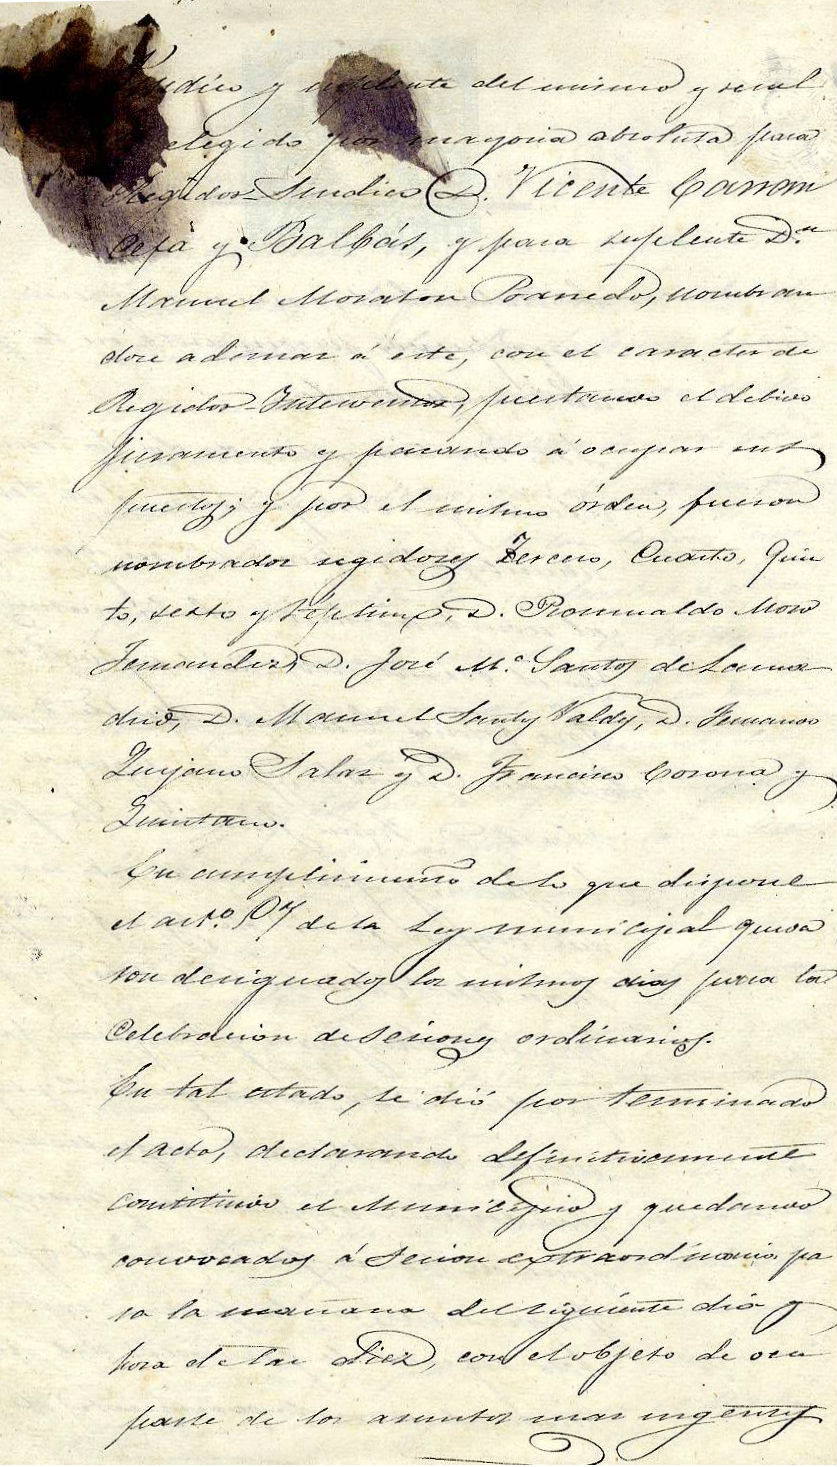 y suplente del mismo y resul
elegido por mayoria absoluta para
Regidor-Sindico D. Vicente Carran
ceja y Balbás, y para suplente D.n
Manuel Moraton Parredo, nombran
dose ademas á este, con el caracter de
Regidor-Interventor, prestando el debido
juramento y pasando á ocupar sus
puestos; y por el mismo órden, fueron
nombrados regidores Tercero, Cuarto, Quin
to, sexto y séptimo, D. Romualdo Moro
Fernandez, D. José M.ª Santos de Lama
drid, D. Manuel Santos Valdes, D. Fernando
Quijano Salas y D. Francisco Corona y
Quintana.
En cumplimiento de lo que dispone
el art.o 57 de la Ley municipal queda
ron designados los mismos dias para la
celebracion de sesiones ordinarias.
En tal estado, se dió por terminado
el acto, declarando definitivamente
constituido el Municipio y quedando
convocados á sesion extraordinaria pa
ra la mañana del siguiente dia y
hora de las diez, con el objeto de ocu
parse de los asuntos mas urgentes